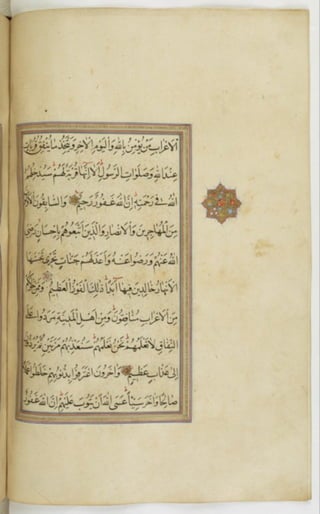 الْاَعْرَابِ مَنْ يُؤْمِنُ بِاللّٰهِ وَالْيَوْمِ الْاٰخِرِ وَيَتَّخِذُ مَا يُنْفِقُ قُرُبَاتٍ
عِنْدَ اللّٰهِ وَصَلَوَاتِ الرَّسُولِ اَلَا اِنَّهَا قُرْبَةٌ لَهُمْ سَيُدْخِلُهُمُ
اللّٰهُ فِي رَحْمَتِهِ اِنَّ اللّٰهَ غَفُورٌ رَحِيمٌ وَالسَّابِقُونَ الْاَوَّلُونَ
مِنَ الْمُهَاجِرِينَ وَالْاَنْصَارِ وَالَّذِينَ اتَّبَعُوهُمْ بِاِحْسَانٍ رَضِيَ
اللّٰهُ عَنْهُمْ وَرَضُوا عَنْهُ وَاَعَدَّ لَهُمْ جَنَّاتٍ تَجْرِي تَحْتَهَا
الْاَنْهَارُ خَالِدِينَ فِيهَا اَبَدًا ذٰلِكَ الْفَوْزُ الْعَظِيمُ وَمِمَّنْ حَوْلَكُمْ
مِنَ الْاَعْرَابِ مُنَافِقُونَ وَمِنْ اَهْلِ الْمَدِينَةِ مَرَدُوا عَلَى
النِّفَاقِ لَا تَعْلَمُهُمْ نَحْنُ نَعْلَمُهُمْ سَنُعَذِّبُهُمْ مَرَّتَيْنِ ثُمَّ يُرَدُّونَ
اِلٰى عَذَابٍ عَظِيمٍ وَاٰخَرُونَ اعْتَرَفُوا بِذُنُوبِهِمْ خَلَطُوا عَمَلًا
صَالِحًا وَاٰخَرَ سَيِّئًا عَسَى اللّٰهُ اَنْ يَتُوبَ عَلَيْهِمْ اِنَّ اللّٰهَ غَفُورٌ